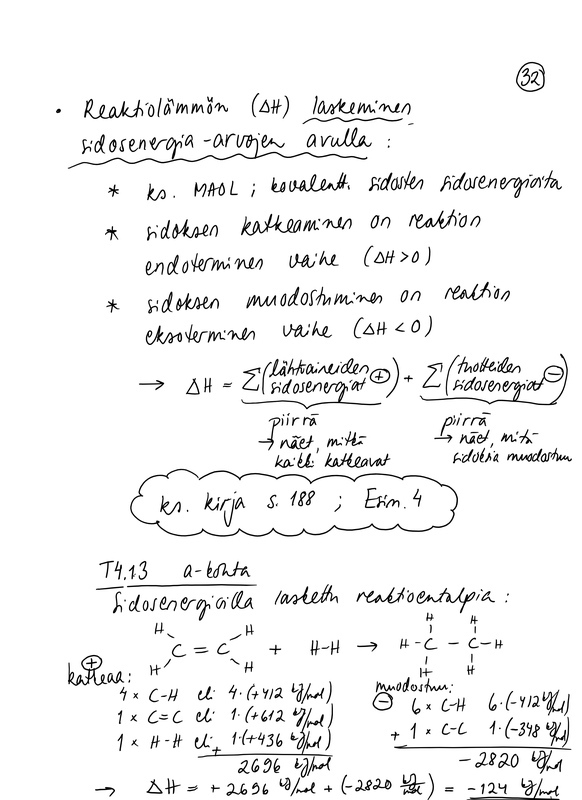 32
• Reaktiolämmön (ΔH) laskeminen
sidosenergia-arvojen avulla :
* ks. MAOL ; kovalentt. sidosten sidosenergioita
* sidoksen katkeaminen on reaktion
endoterminen vaihe (ΔH>0)
* sidoksen muodostuminen on reaktion
eksoterminen vaihe (ΔH < 0)
→ ΔH = Σ(lähtöaineiden sidosenergiat ⊕) + Σ(tuotteiden sidosenergiat ⊖)
piirrä piirrä
→ näet, mitkä → näet, mitä
kaikki katkeavat sidoksia muodostuu
ks. kirja s. 188 ; Esim. 4
T4.13 a-kohta
Sidosenergioilla laskettu reaktioentalpia :
H H H H
C = C + H-H → H - C - C - H
H H H H
⊕ katkeaa: muodostuu: ⊖
4 × C-H eli 4·(+412 kJ/mol) 6 × C-H 6·(-412 kJ/mol)
1 × C=C eli 1·(+612 kJ/mol) + 1 × C-C 1·(-348 kJ/mol)
1 × H-H eli + 1·(+436 kJ/mol) -2820 kJ/mol
2696 kJ/mol
→ ΔH = +2696 kJ/mol + (-2820 kJ/mol) = -124 kJ/mol